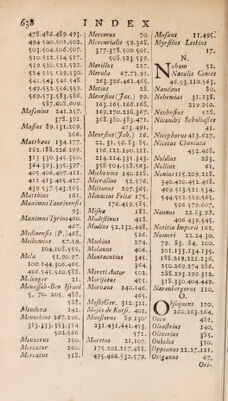 638 INDEX
478.486.489.493.
494.500.501.502.
503.504.506.507.
510.511.512.518.
519.520.521.522.
524.525.529.530.
531.541.543.546.
547.549.552.553.
569.573.583.586.
587.606.609.
Masonius 241.257.
378.392.
Masius 89.131.209.
266.
Mattheus 134.177.
182.185.226.299.
313.330.345.350.
364.393.395.397.
405.406.407.411.
412.431.435.437.
439.537.545.565.
Matthias 161.
Maximus Taurinensis
93.
Maximus Tyrius 460.
467.
Medinensis (P.) 48.
Melissenus 57.59.
104.108.455.
Mela 51.90.97.
100.146.306.465.
466.541.560.588.
Meleager 21.
Menasseh-Ben Israel
5.70.205.488.
582.
Mendoza 142.
Menochius 267.290.
313.333.353.354.
502.504.
Menzerus 250.
Mercator 260.
Mercatus 518.
Mercerus 70.
Mercurialis 59.368.
369.420.452.
528.539.
Merillus 127.
Merula 67.71.91.
263.265.462.466.
Metius 28.
Meursius (Jac.) 99.
163.165.166.168.
169.170.206.367.
368.380.383.471.
473.491.
Meursius (Joh.) 16.
22.31.56.83.85.
116.122.190.211.
214.224.335.343.
358.504.563.563.
Methodius 140.225.
Micrælius 22.556.
Miltanus 297.365.
Minucius Felix 175.
176.415.585.
Misna 185.
Modestinus 428.
Modius 52.132.448.
526.
Moebius 274.
Molanus 406.
Montacutius 345.
348.
Moreti Autor 502.
Morisotus 455.
Mornæus 140.146.
465.
Moses Ger. 312.321.
Moses de Korsi. 401.
Munsterus 89.130.
231.431.441.453.
533.
Muretus 21.107.
175.201.217.488.
495.466.537.579.
Musæus 11.495.
Myrsilus Lesbius
17.
N.
Nabum 52.
Natalis Comes
46.93.118.563.
Naudæus 80.
Nehemias 31.138.
219.250.
Nenhusius 528.
Nicandri Scholiastes
41.
Nicephorus 413.627.
Nicetas Choniata
452.468.
Noldius 283.
Nollius 61.
Nonius 115.209.218.
340.450.452.468.
469.513.521.534.
544.552.559.565.
566.577.609.
Nonnus 22.83.98.
406.439.545.
Notitia Imperii 162.
Numeri 22.24.30.
79. 83. 84. 100.
101.133.134.135.
188.219.221.236.
250.269.274.286.
288.293.299.312.
318.330.404.449.
Nurembergerus 110.
O.
Obsequens 120.
260.263.264.
Occo 482.
Oleastrius 140.
Oliverius 385.
Onkelos 320.
Oppianus 22.27.121.
Origanus 67.
Ori-